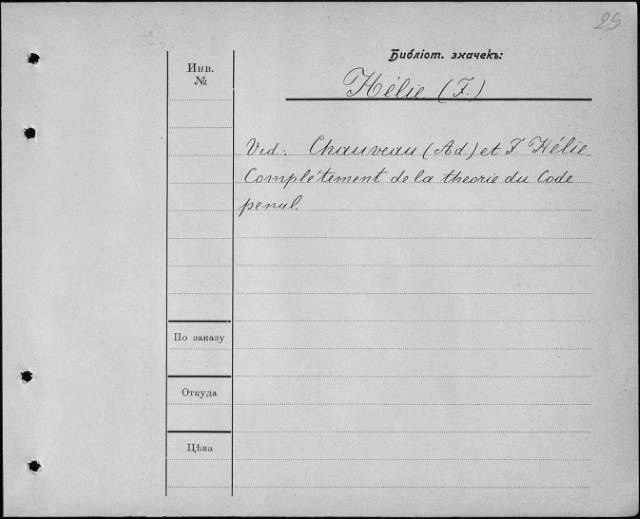 29
Библіот. значекъ:
Инв.
№
Hélie (F.)
Vid: Chauveau (Ad.) et F Hélie
Complétement de la theorie du Code
penal.
По заказу
Откуда
Цѣна